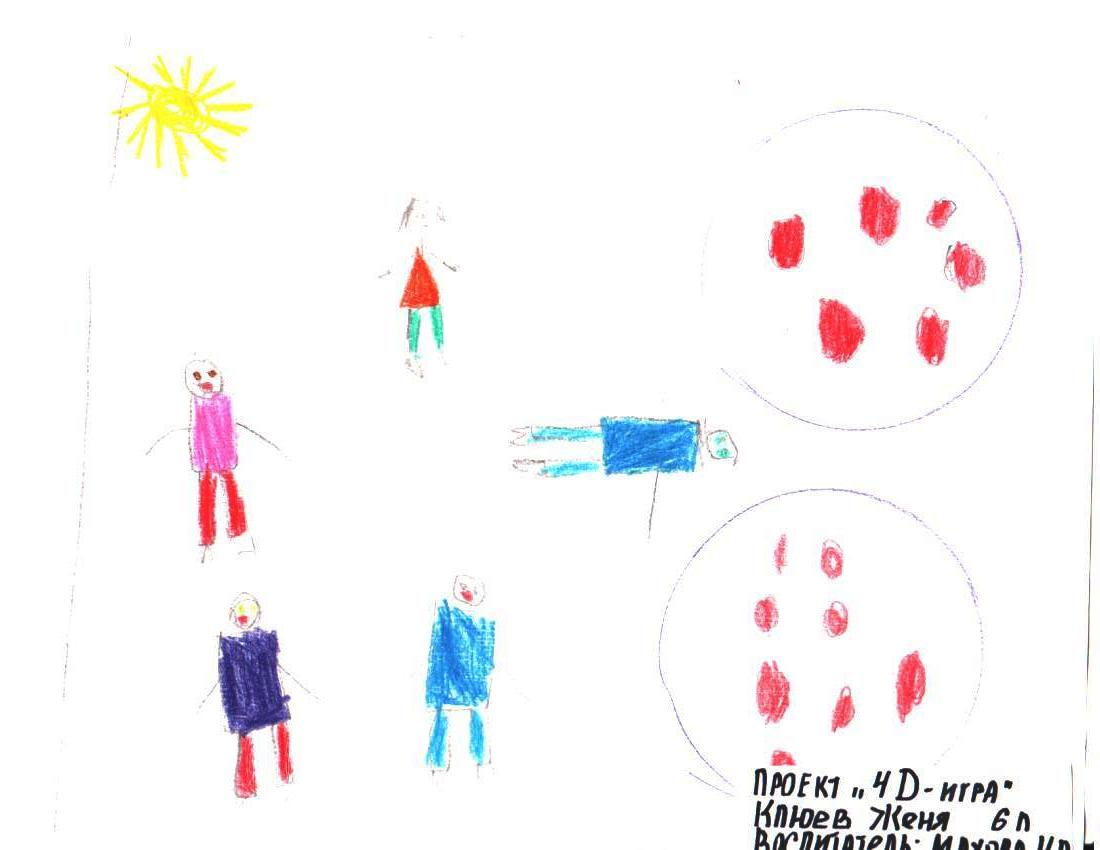 ПРОЕКТ „4D-ИГРА"
КЛЮЕВ ЖЕНЯ 6 Л
ВОСПИТАТЕЛЬ: